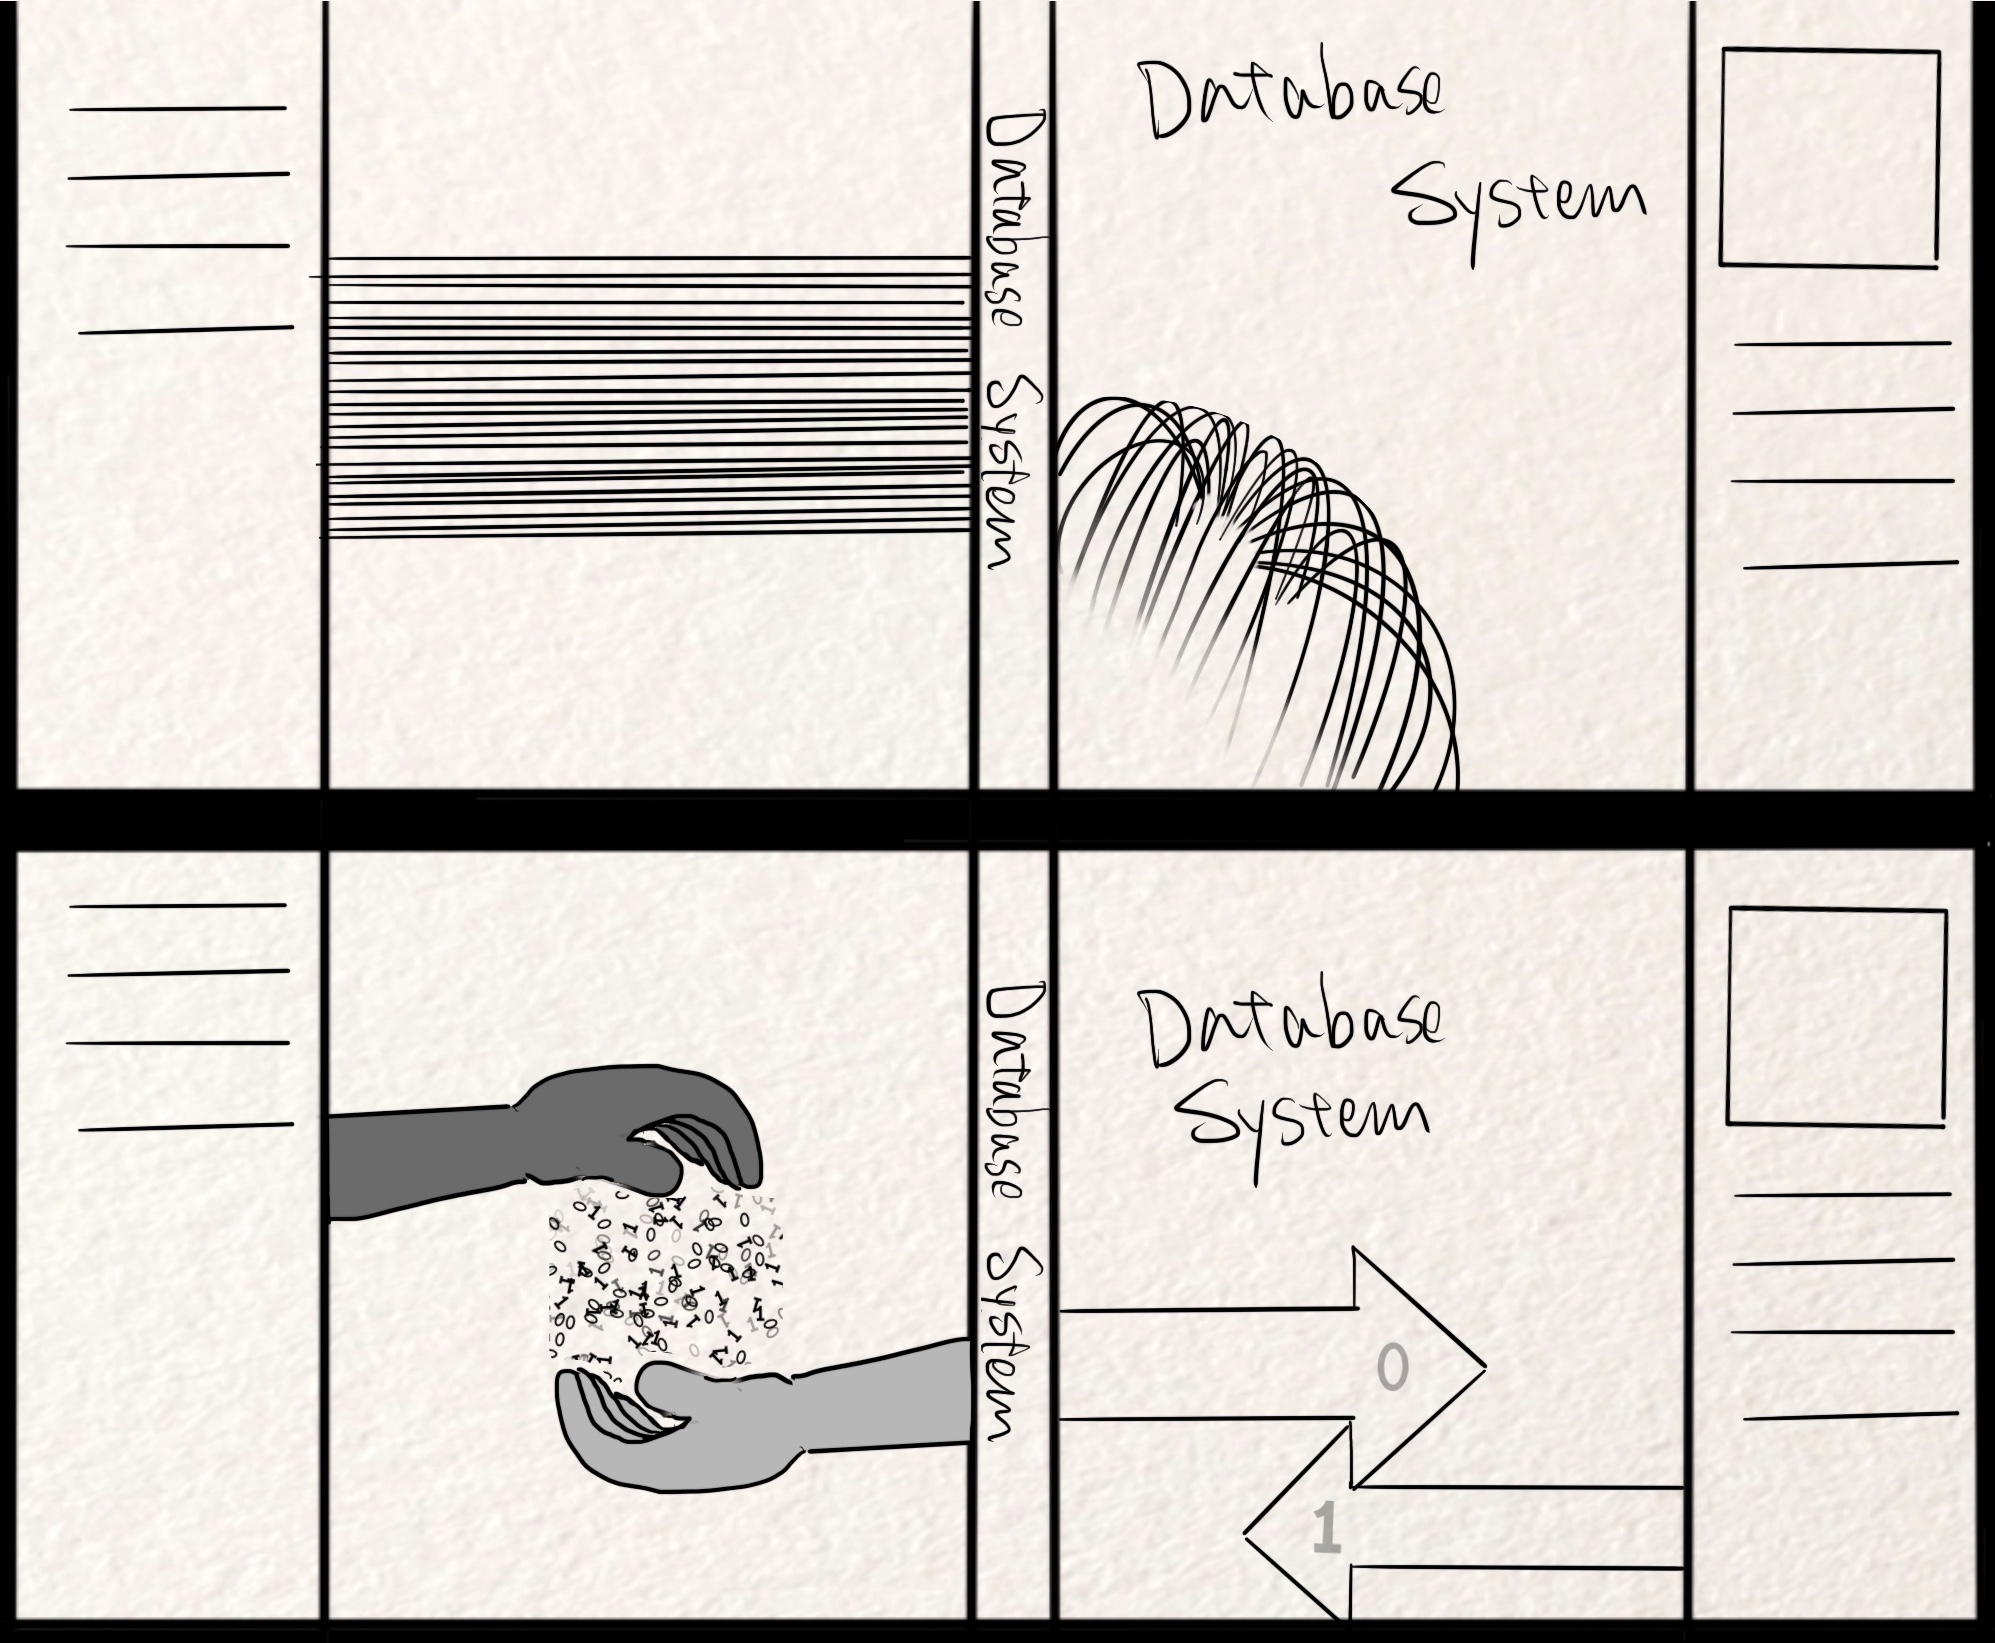 Database System
Database
System
Database System
Database
System
0
1